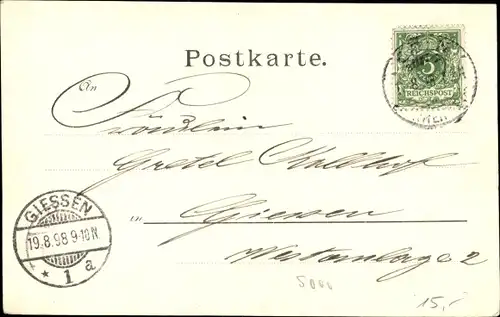 Postkarte.
5
REICHSPOST
An
Fräulein
Gretel
in Giessen
2
GIESSEN
19.8.98 9-10N
* 1 a
5000
15,-